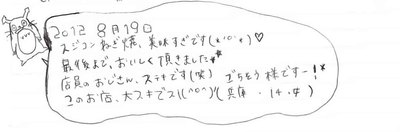 2012 8月19日
スジコンねぎ焼、美味すぎです(*'o'*)♡
最後まで、おいしく頂きました**
店員のおじさん、ステキです(笑) ごちそう様ですー!
このお店、大スキでス!(^o^)/(兵庫・14・女)